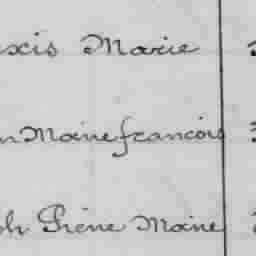 exis Marie
n Marie francois
ph Irène Marie